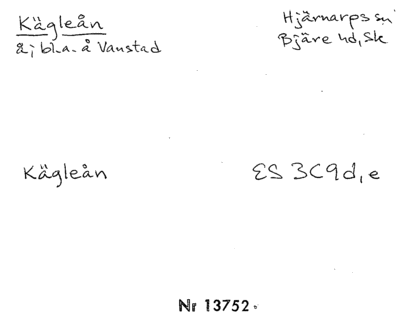 Kägleån
å; bl.a. å Vanstad
Hjärnarps sn
Bjäre hd, Sk
Kägleån
ES 3C9d, e
Nr 13752.